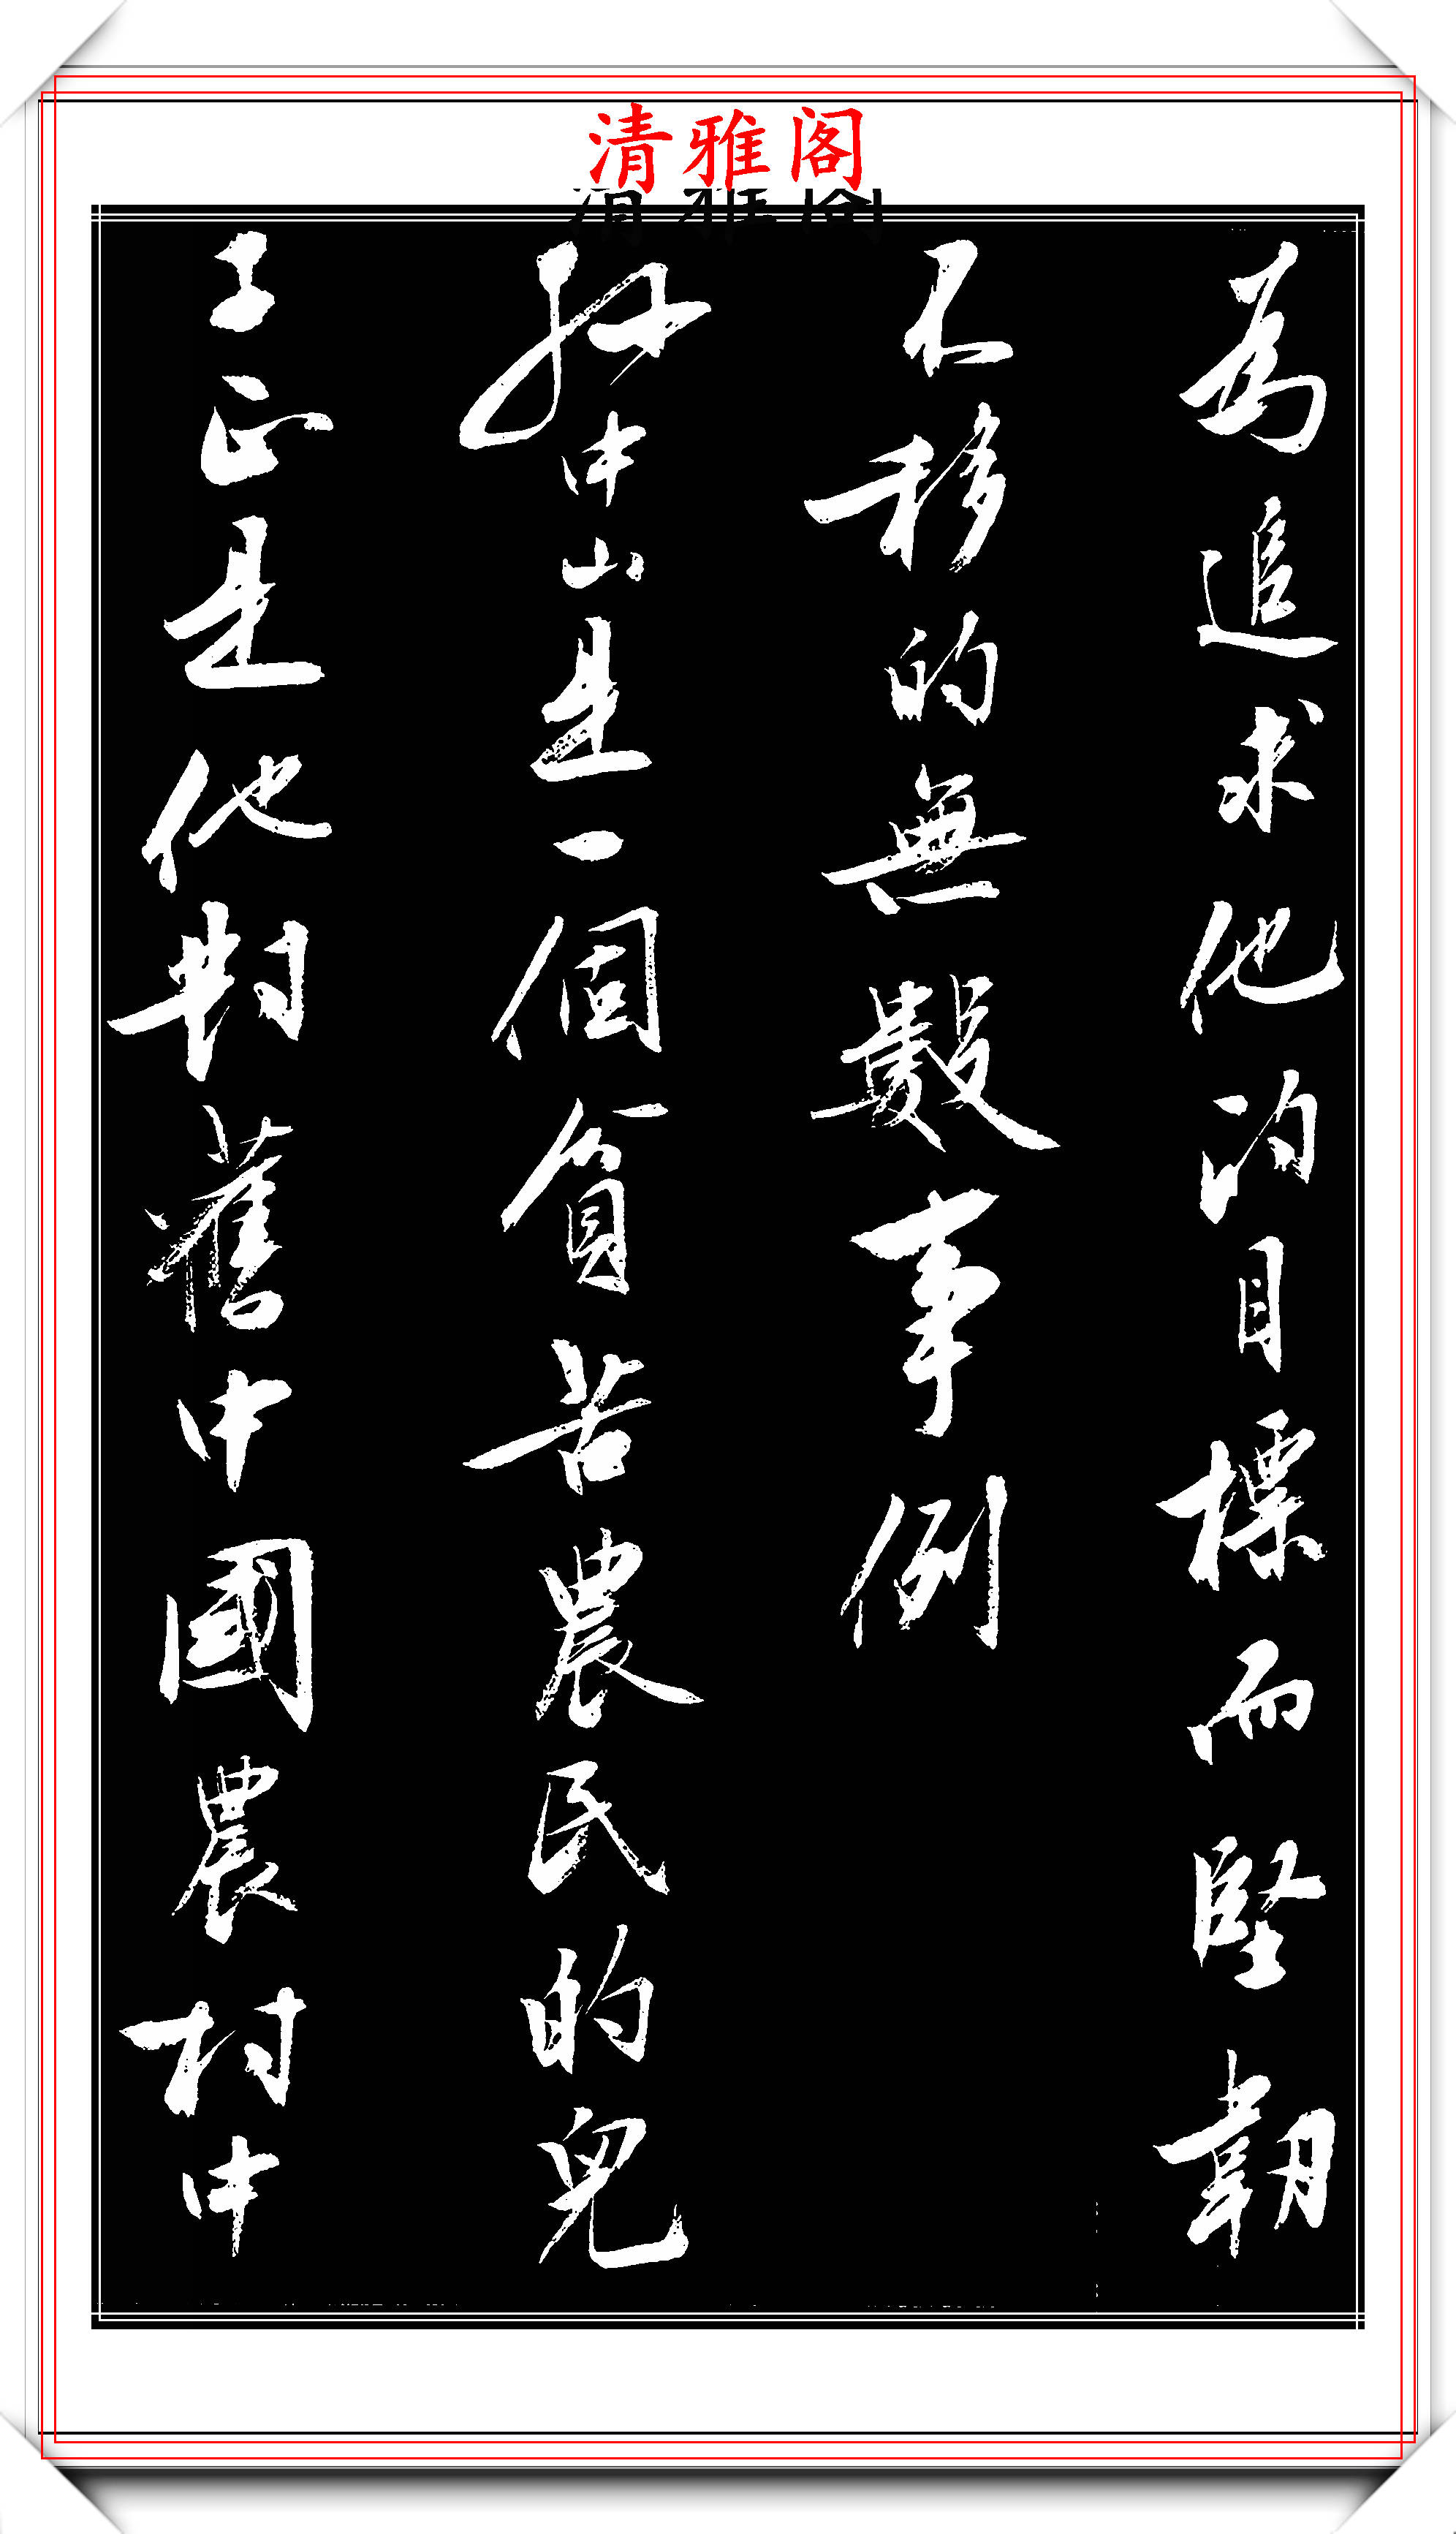 清雅阁
為追求他的目標而堅韌
不移的無數事例
孙中山是一個貧苦農民的兒
子正是他對舊中國農村中